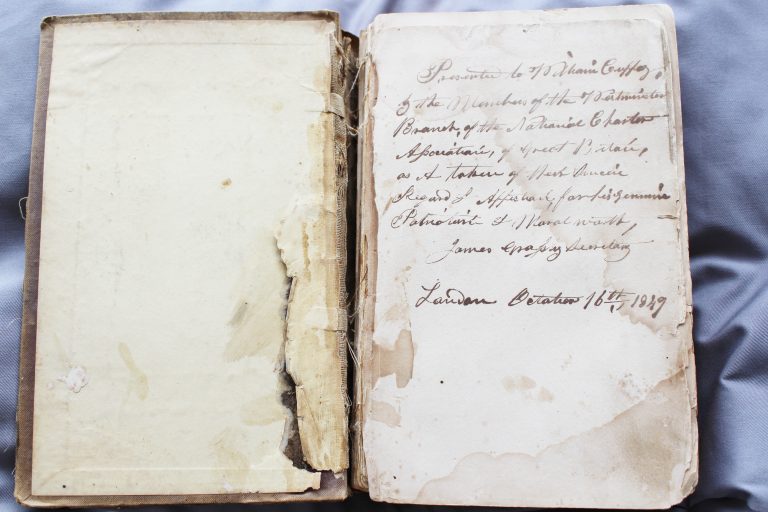 Presented to William Cuffay,
by the Members of the Westminster
Branch, of the National Charter
Association, of Great Britain,
as A token of their Sincere
Regard & Affection for his genuine
Patriotism & Moral worth,
James Grassby Secretary
London October 16th 1849